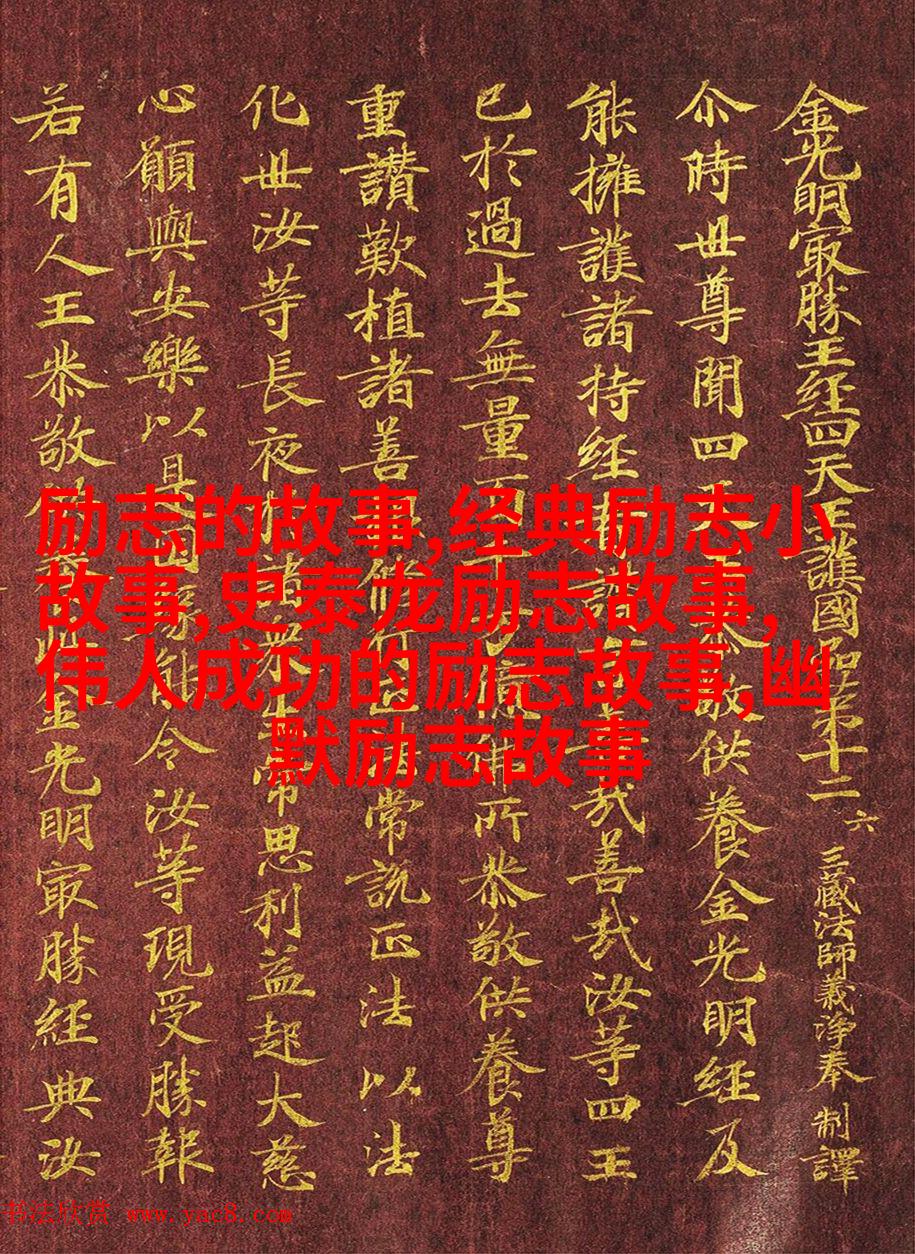 金光明㝡勝王經四天王護國品第十二 六 三藏法師義淨奉 制譯
尒時世尊聞四天王恭敬供養金光明經及
能擁護諸持經者讚言善哉善哉汝等四王
已於過去無量百千億佛所恭敬供養尊
重讚歎植諸善根修行正法常說正法以法
化世汝等長夜於諸眾生常思利益起大慈
心願與安樂以是因緣能令汝等現受勝報
若有人王恭敬供養此金光明㝡勝經典汝
励志的故事,经典励志小
故事,史泰龙励志故事,
伟人成功的励志故事,幽
默励志故事
书法欣赏 www.yac8.com